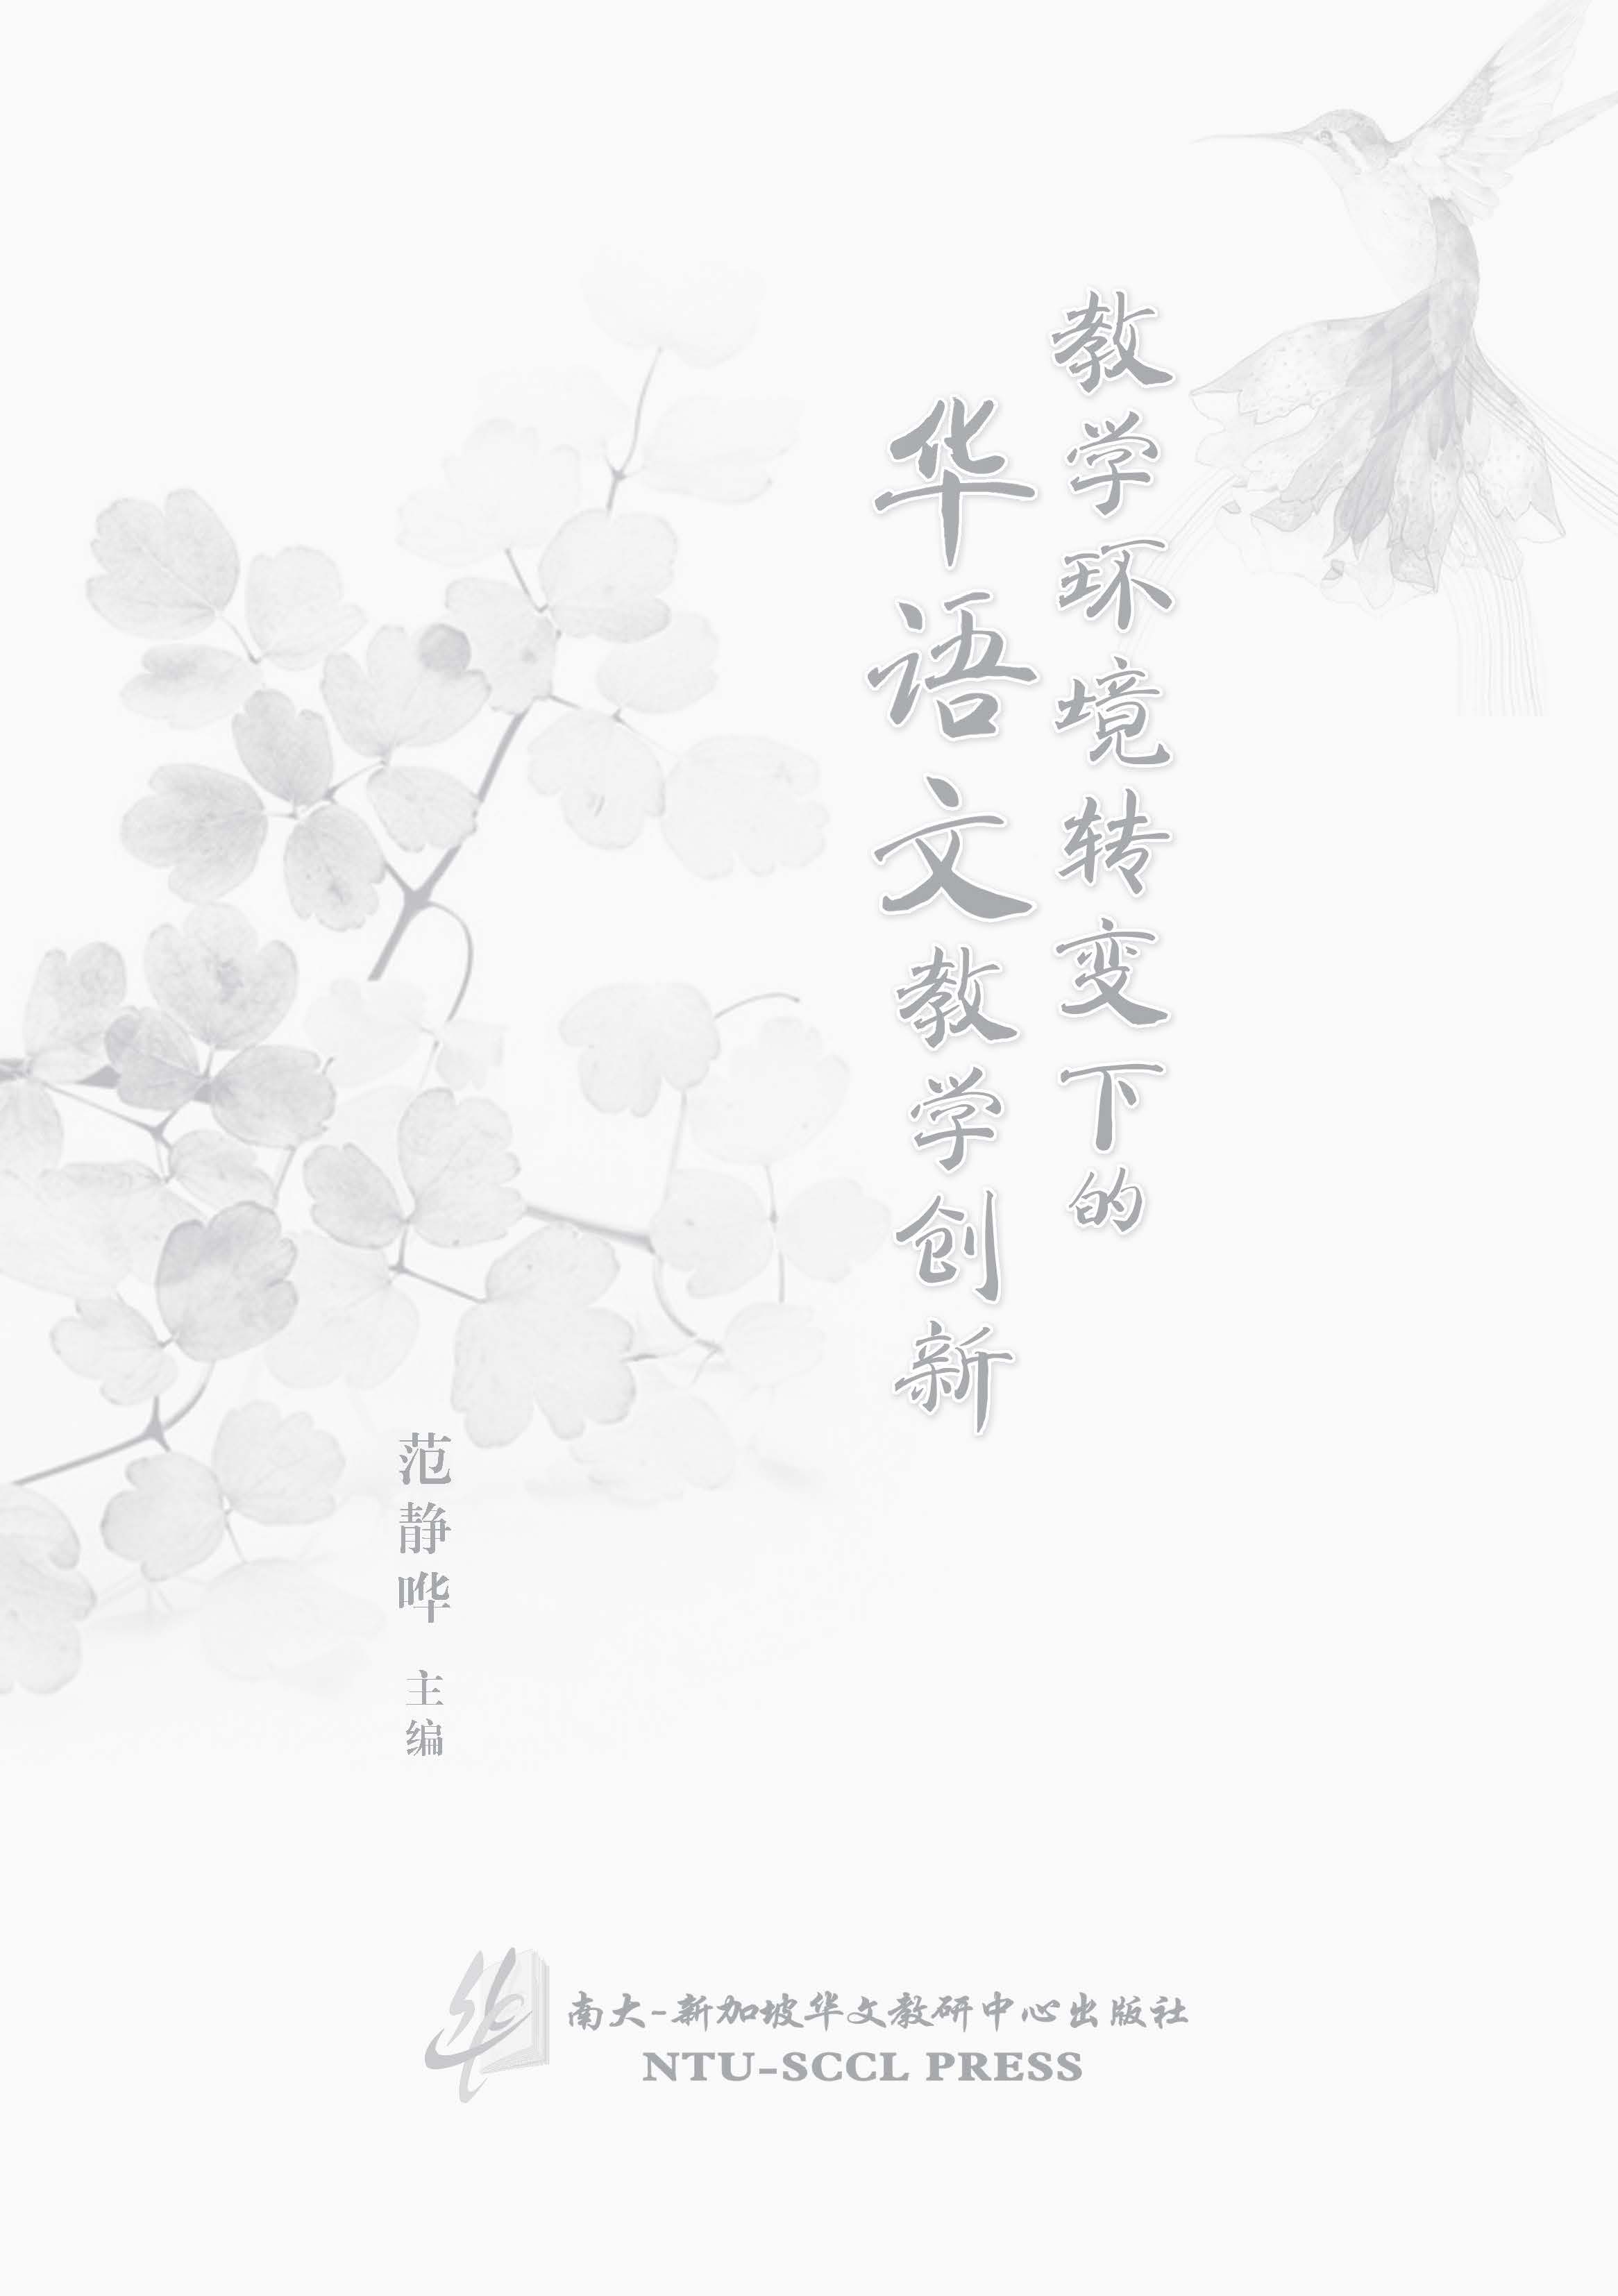 教学环境转变下的
华语文教学创新
范静哗 主编
南大-新加坡华文教研中心出版社
NTU-SCCL PRESS